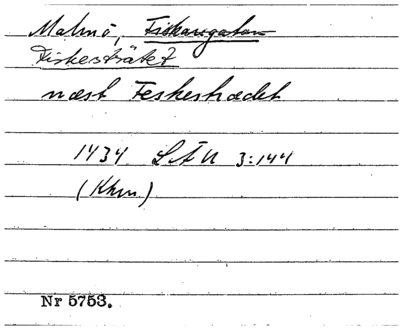 Malmö, Fiskaregatan
Fiskesträtet
næst Feskestrædet
1434 LÅU 3:144
(Khm)
Nr 5753.